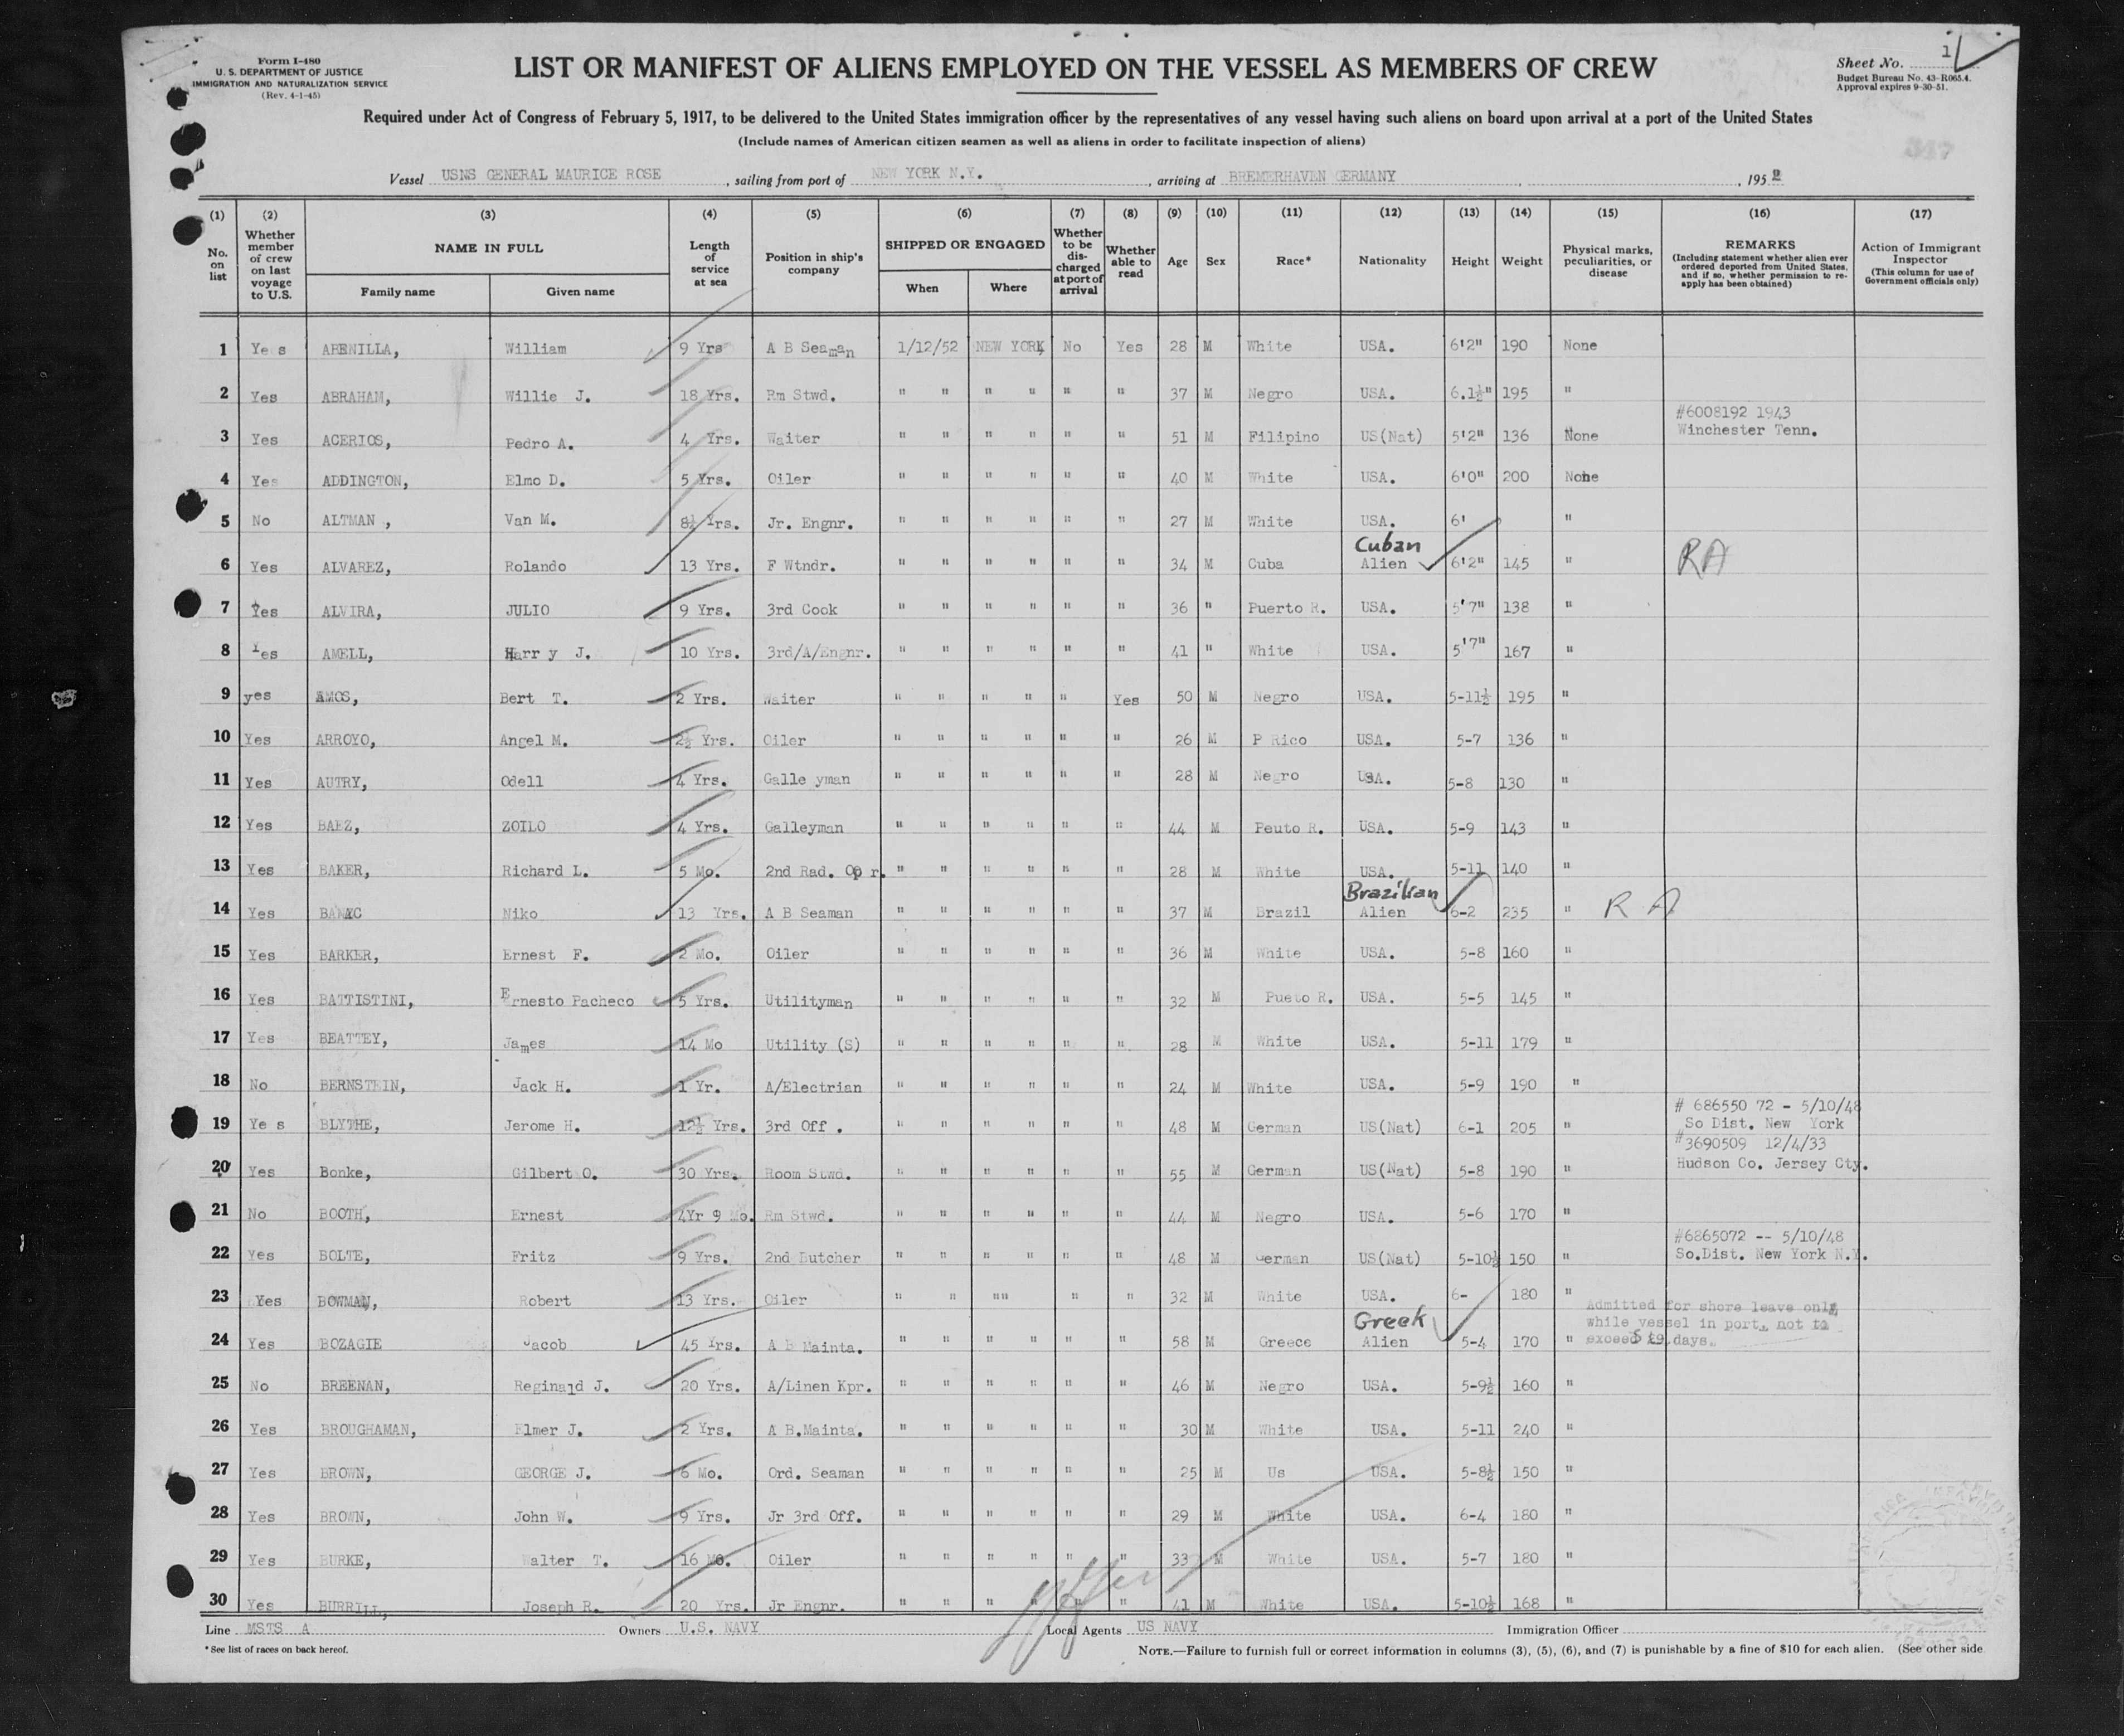 Form I-480
U. S. DEPARTMENT OF JUSTICE
IMMIGRATION AND NATURALIZATION SERVICE
(Rev. 4-1-45)
LIST OR MANIFEST OF ALIENS EMPLOYED ON THE VESSEL AS MEMBERS OF CREW
Sheet No. 1
Budget Bureau No. 43-R065.4.
Approval expires 9-30-51.
Required under Act of Congress of February 5, 1917, to be delivered to the United States immigration officer by the representatives of any vessel having such aliens on board upon arrival at a port of the United States
(Include names of American citizen seamen as well as aliens in order to facilitate inspection of aliens)
347
Vessel USNS GENERAL MAURICE ROSE, sailing from port of NEW YORK N.Y., arriving at BREMERHAVEN GERMANY, 1952
(1) (2) (3) (4) (5) (6) (7) (8) (9) (10) (11) (12) (13) (14) (15) (16) (17)
No. on list
Whether member of crew on last voyage to U.S.
NAME IN FULL
Family name Given name
Length of service at sea
Position in ship's company
SHIPPED OR ENGAGED
When Where
Whether to be discharged at port of arrival
Whether able to read
Age
Sex
Race*
Nationality
Height
Weight
Physical marks, peculiarities, or disease
REMARKS
(Including statement whether alien ever ordered deported from United States, and if so, whether permission to reapply has been obtained)
Action of Immigrant Inspector
(This column for use of Government officials only)
1 Yes ABENILLA, William 9 Yrs A B Seaman 1/12/52 NEW YORK No Yes 28 M White USA. 6'2" 190 None
2 Yes ABRAHAM, Willie J. 18 Yrs. Rm Stwd. " " " " " " 37 M Negro USA. 6.1½" 195 "
#6008192 1943
3 Yes ACERIOS, Pedro A. 4 Yrs. Waiter " " " " " " 51 M Filipino US(Nat) 5'2" 136 None Winchester Tenn.
4 Yes ADDINGTON, Elmo D. 5 Yrs. Oiler " " " " " " 40 M White USA. 6'0" 200 None
5 No ALTMAN , Van M. 8½ Yrs. Jr. Engnr. " " " " " " 27 M White USA. 6' "
Cuban
6 Yes ALVAREZ, Rolando 13 Yrs. F Wtndr. " " " " " " 34 M Cuba Alien 6'2" 145 " RA
7 Yes ALVIRA, JULIO 9 Yrs. 3rd Cook " " " " " " 36 " Puerto R. USA. 5'7" 138 "
8 Yes AMELL, Harry J. 10 Yrs. 3rd/A/Engnr. " " " " " " 41 " White USA. 5'7" 167 "
9 yes AMOS, Bert T. 2 Yrs. Waiter " " " " " Yes 50 M Negro USA. 5-11½ 195 "
10 Yes ARROYO, Angel M. 2½ Yrs. Oiler " " " " " " 26 M P Rico USA. 5-7 136 "
11 Yes AUTRY, Odell 4 Yrs. Galle yman " " " " " " 28 M Negro USA. 5-8 130 "
12 Yes BAEZ, ZOILO 4 Yrs. Galleyman " " " " " " 44 M Peuto R. USA. 5-9 143 "
13 Yes BAKER, Richard L. 5 Mo. 2nd Rad. Op r. " " " " " " 28 M White USA. 5-11 140 "
Brazilian
14 Yes Niko 13 Yrs. A B Seaman " " " " " " 37 M Brazil Alien 6-2 235 " R A
15 Yes BARKER, Ernest F. 2 Mo. Oiler " " " " " " 36 M White USA. 5-8 160 "
16 Yes BATTISTINI, Ernesto Pacheco 5 Yrs. Utilityman " " " " " " 32 M Pueto R. USA. 5-5 145 "
17 Yes BEATTEY, James 14 Mo Utility (S) " " " " " " 28 M White USA. 5-11 179 "
18 No BERNSTEIN, Jack H. 1 Yr. A/Electrian " " " " " " 24 M White USA. 5-9 190 "
# 686550 72 - 5/10/48
19 Ye s BLYTHE, Jerome H. 12½ Yrs. 3rd Off . " " " " " " 48 M German US(Nat) 6-1 205 " So Dist. New York
#3690509 12/4/33
20 Yes Bonke, Gilbert O. 30 Yrs. Room Stwd. " " " " " " 55 M German US(Nat) 5-8 190 " Hudson Co. Jersey Cty.
21 No BOOTH, Ernest 4Yr 9 Mo. Rm Stwd. " " " " " " 44 M Negro USA. 5-6 170 "
#6865072 -- 5/10/48
22 Yes BOLTE, Fritz 9 Yrs. 2nd Butcher " " " " " " 48 M German US(Nat) 5-10½ 150 " So.Dist. New York N.Y.
23 Yes BOWMAN, Robert 13 Yrs. Oiler " " "" " " 32 M White USA. 6- 180 "
Admitted for shore leave only
Greek while vessel in port, not to
24 Yes BOZAGIE Jacob 45 Yrs. A B Mainta. " " " " " " 58 M Greece Alien 5-4 170 " exceed 29 days.
25 No BREENAN, Reginald J. 20 Yrs. A/Linen Kpr. " " " " " " 46 M Negro USA. 5-9½ 160 "
26 Yes BROUGHAMAN, Elmer J. 2 Yrs. A B.Mainta. " " " " " " 30 M White USA. 5-11 240 "
27 Yes BROWN, GEORGE J. 6 Mo. Ord. Seaman " " " " " " 25 M Us USA. 5-8½ 150 "
28 Yes BROWN, John W. 9 Yrs. Jr 3rd Off. " " " " " " 29 M White USA. 6-4 180 "
29 Yes BURKE, Walter T. 16 Mo. Oiler " " " " " " 33 M White USA. 5-7 180 "
30 Yes BURRILL, Joseph R. 20 Yrs. Jr Engnr. " " " " " " 41 M White USA. 5-10½ 168 "
Line MSTS A Owners U.S. NAVY Local Agents US NAVY Immigration Officer
* See list of races on back hereof.
NOTE.—Failure to furnish full or correct information in columns (3), (5), (6), and (7) is punishable by a fine of $10 for each alien. (See other side